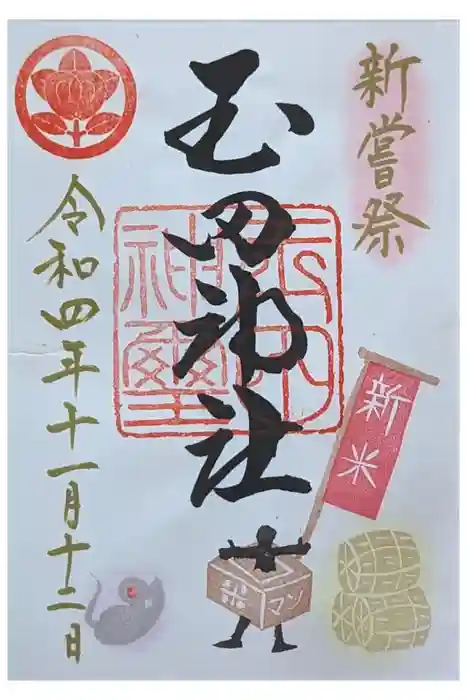 新嘗祭
玉田神社
令和四年十一月十二日
新米
米マン